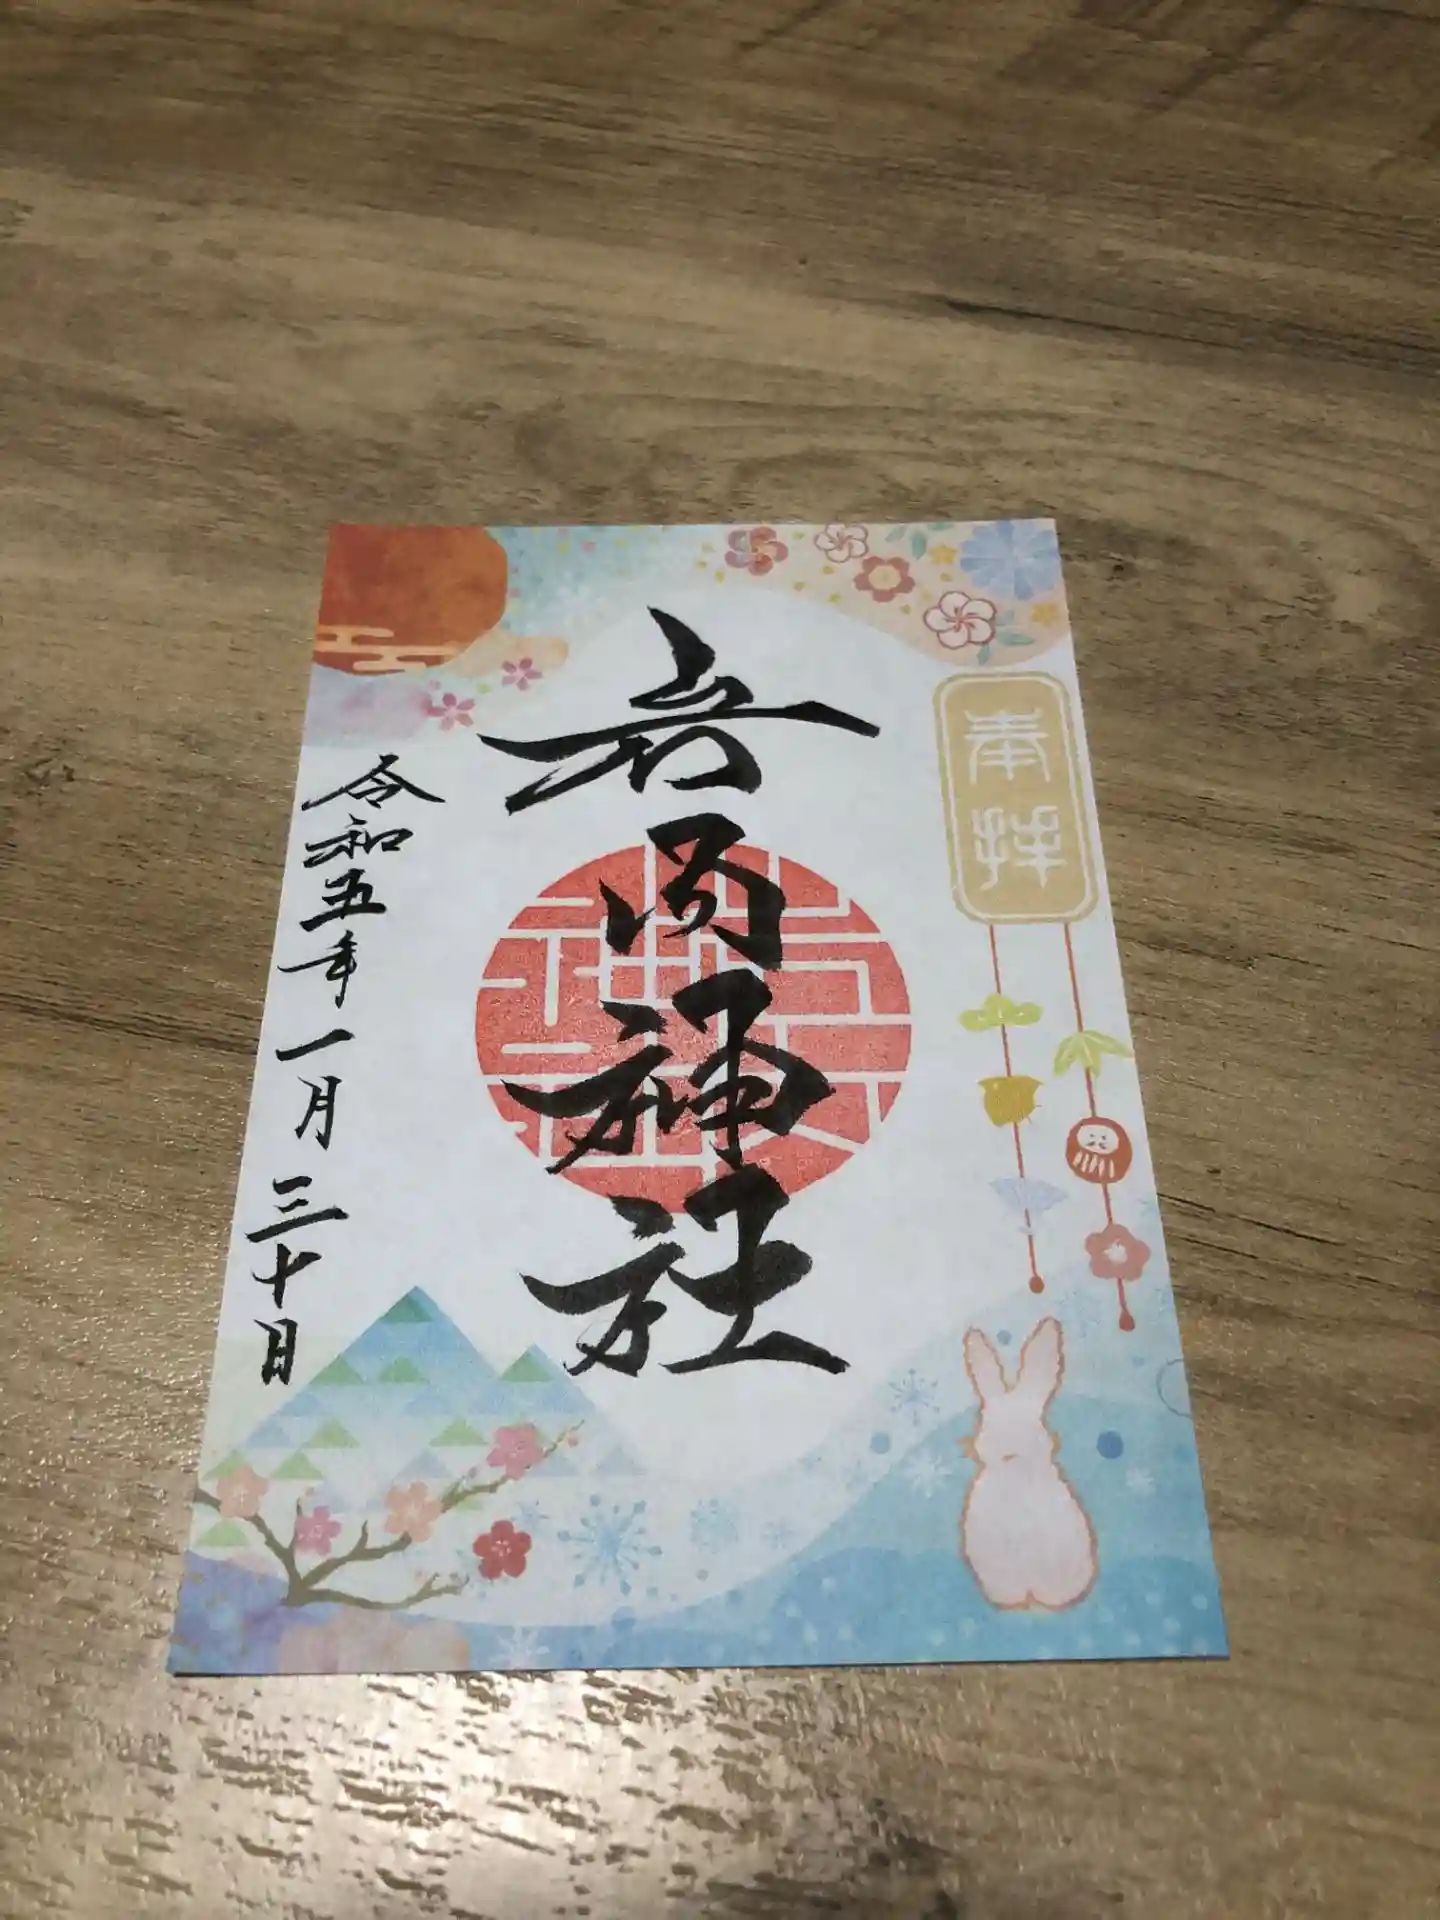 奉拝
神社
令和五年一月三十日